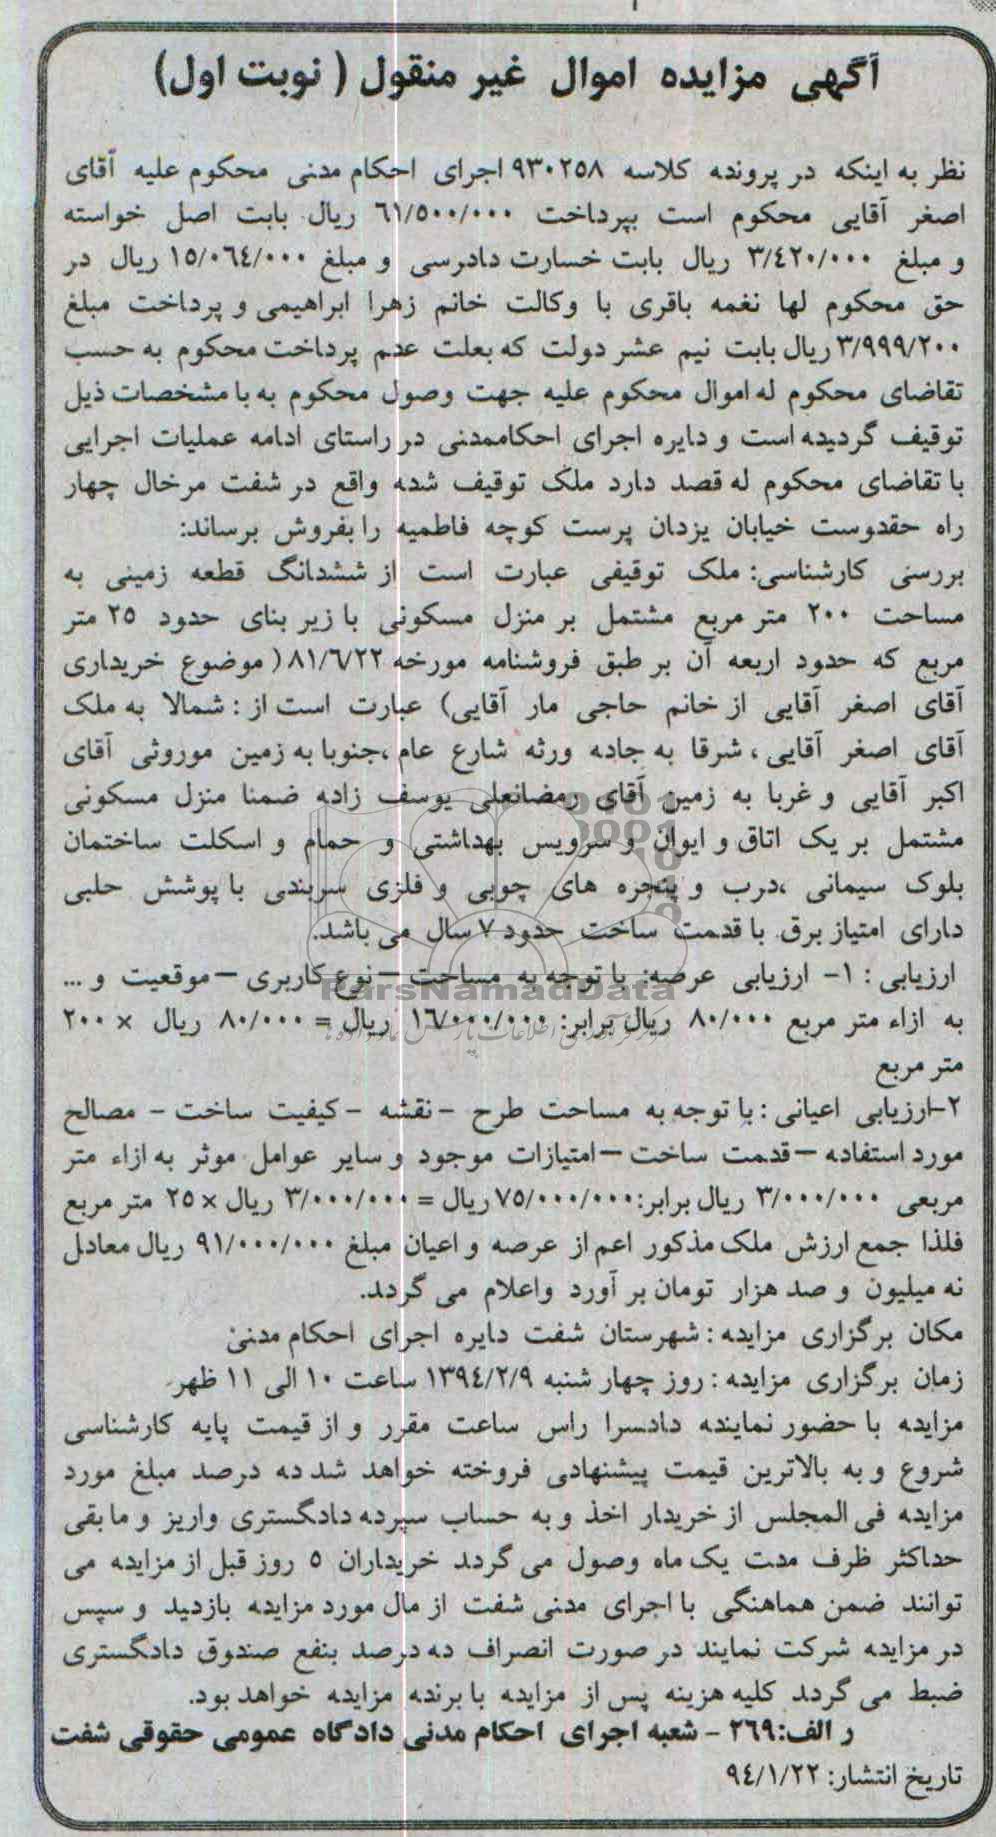 آگهی مزایده اموال غیر منقول ( نوبت اول)
نظر به اینکه در پرونده کلاسه ۹۳۰۲۵۸ اجرای احکام مدنی محکوم علیه آقای
اصغر آقایی محکوم است بپرداخت ۶۱/۵۰۰/۰۰۰ ریال بابت اصل خواسته
و مبلغ ۳/۴۲۰/۰۰۰ ریال بابت خسارت دادرسی و مبلغ ۱۵/۰۶۴/۰۰۰ ریال در
حق محکوم لها نغمه باقری با وکالت خانم زهرا ابراهیمی و پرداخت مبلغ
۳/۹۹۹/۲۰۰ ریال بابت نیم عشر دولت که بعلت عدم پرداخت محکوم به حسب
تقاضای محکوم له اموال محکوم علیه جهت وصول محکوم به با مشخصات ذیل
توقیف گردیده است و دایره اجرای احکاممدنی در راستای ادامه عملیات اجرایی
با تقاضای محکوم له قصد دارد ملک توقیف شده واقع در شفت مرخال چهار
راه حقدوست خیابان یزدان پرست کوچه فاطمیه را بفروش برساند:
بررسی کارشناسی: ملک توقیفی عبارت است از ششدانگ قطعه زمینی به
مساحت ۲۰۰ متر مربع مشتمل بر منزل مسکونی با زیر بنای حدود ۲۵ متر
مربع که حدود اربعه آن بر طبق فروشنامه مورخه ۸۱/۶/۲۲ ( موضوع خریداری
آقای اصغر آقایی از خانم حاجی مار آقایی) عبارت است از : شمالا به ملک
آقای اصغر آقایی ، شرقا به جاده ورثه شارع عام ،جنوبا به زمین موروثی آقای
اکبر آقایی و غربا به زمین آقای رمضانعلی یوسف زاده ضمنا منزل مسکونی
مشتمل بر یک اتاق و ایوان و سرویس بهداشتی و حمام و اسکلت ساختمان
بلوک سیمانی ،درب و پنجره های چوبی و فلزی سربندی با پوشش حلبی
دارای امتیاز برق با قدمت ساخت حدود ۷ سال می باشد.
ارزیابی : ۱- ارزیابی عرصه: با توجه به مساحت – نوع کاربری – موقعیت و ...
ParsNamadData
به ازاء متر مربع ۸۰/۰۰۰ ریال برابر: ۱۶/۰۰۰/۰۰۰ ریال = ۸۰/۰۰۰ ریال × ۲۰۰
متر مربع
۲-ارزیابی اعیانی : با توجه به مساحت طرح - نقشه - کیفیت ساخت - مصالح
مورد استفاده – قدمت ساخت – امتیازات موجود و سایر عوامل موثر به ازاء متر
مربعی ۳/۰۰۰/۰۰۰ ریال برابر: ۷۵/۰۰۰/۰۰۰ ریال = ۳/۰۰۰/۰۰۰ ریال × ۲۵ متر مربع
فلذا جمع ارزش ملک مذکور اعم از عرصه و اعیان مبلغ ۹۱/۰۰۰/۰۰۰ ریال معادل
نه میلیون و صد هزار تومان بر آورد واعلام می گردد.
مکان برگزاری مزایده : شهرستان شفت دایره اجرای احکام مدنی
زمان برگزاری مزایده : روز چهار شنبه ۱۳۹۴/۲/۹ ساعت ۱۰ الی ۱۱ ظهر
مزایده با حضور نماینده دادسرا راس ساعت مقرر و از قیمت پایه کارشناسی
شروع و به بالاترین قیمت پیشنهادی فروخته خواهد شد ده درصد مبلغ مورد
مزایده فی المجلس از خریدار اخذ و به حساب سپرده دادگستری واریز و ما بقی
حداکثر ظرف مدت یک ماه وصول می گردد خریداران ۵ روز قبل از مزایده می
توانند ضمن هماهنگی با اجرای مدنی شفت از مال مورد مزایده بازدید و سپس
در مزایده شرکت نمایند در صورت انصراف ده درصد بنفع صندوق دادگستری
ضبط می گردد کلیه هزینه پس از مزایده با برنده مزایده خواهد بود.
ر الف:۲۶۹ - شعبه اجرای احکام مدنی دادگاه عمومی حقوقی شفت
تاریخ انتشار: ۹۴/۱/۲۲